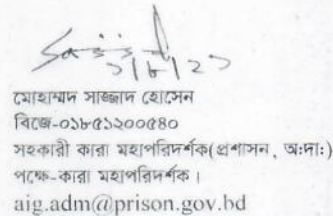 ২/৮/২৩
মোহাম্মদ সাজ্জাদ হোসেন
বিজে-০১৮৫১২০০৫৪০
সহকারী কারা মহাপরিদর্শক(প্রশাসন, অ:দা:)
পক্ষে-কারা মহাপরিদর্শক।
aig.adm@prison.gov.bd